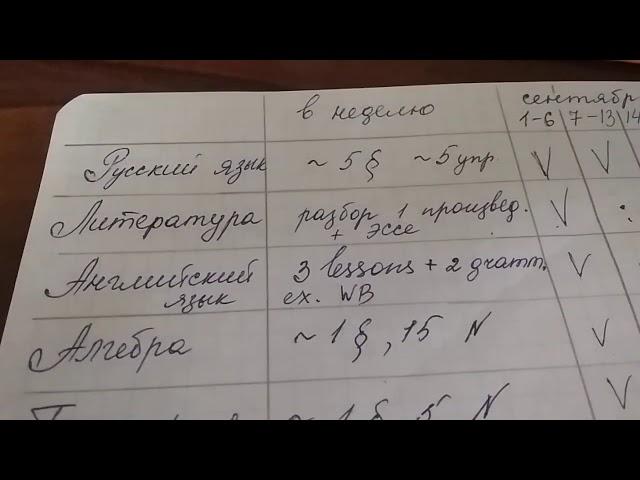 в неделю сентябр
1-6 7-13 14
Русский язык ~ 5 § ~ 5 упр. V V
Литература разбор 1 произвед. V
+ эссе
Английский 3 lessons + 2 gramm. V
язык ex. WB
Алгебра ~ 1 §, 15 N V
~ 1 §, 5 N V